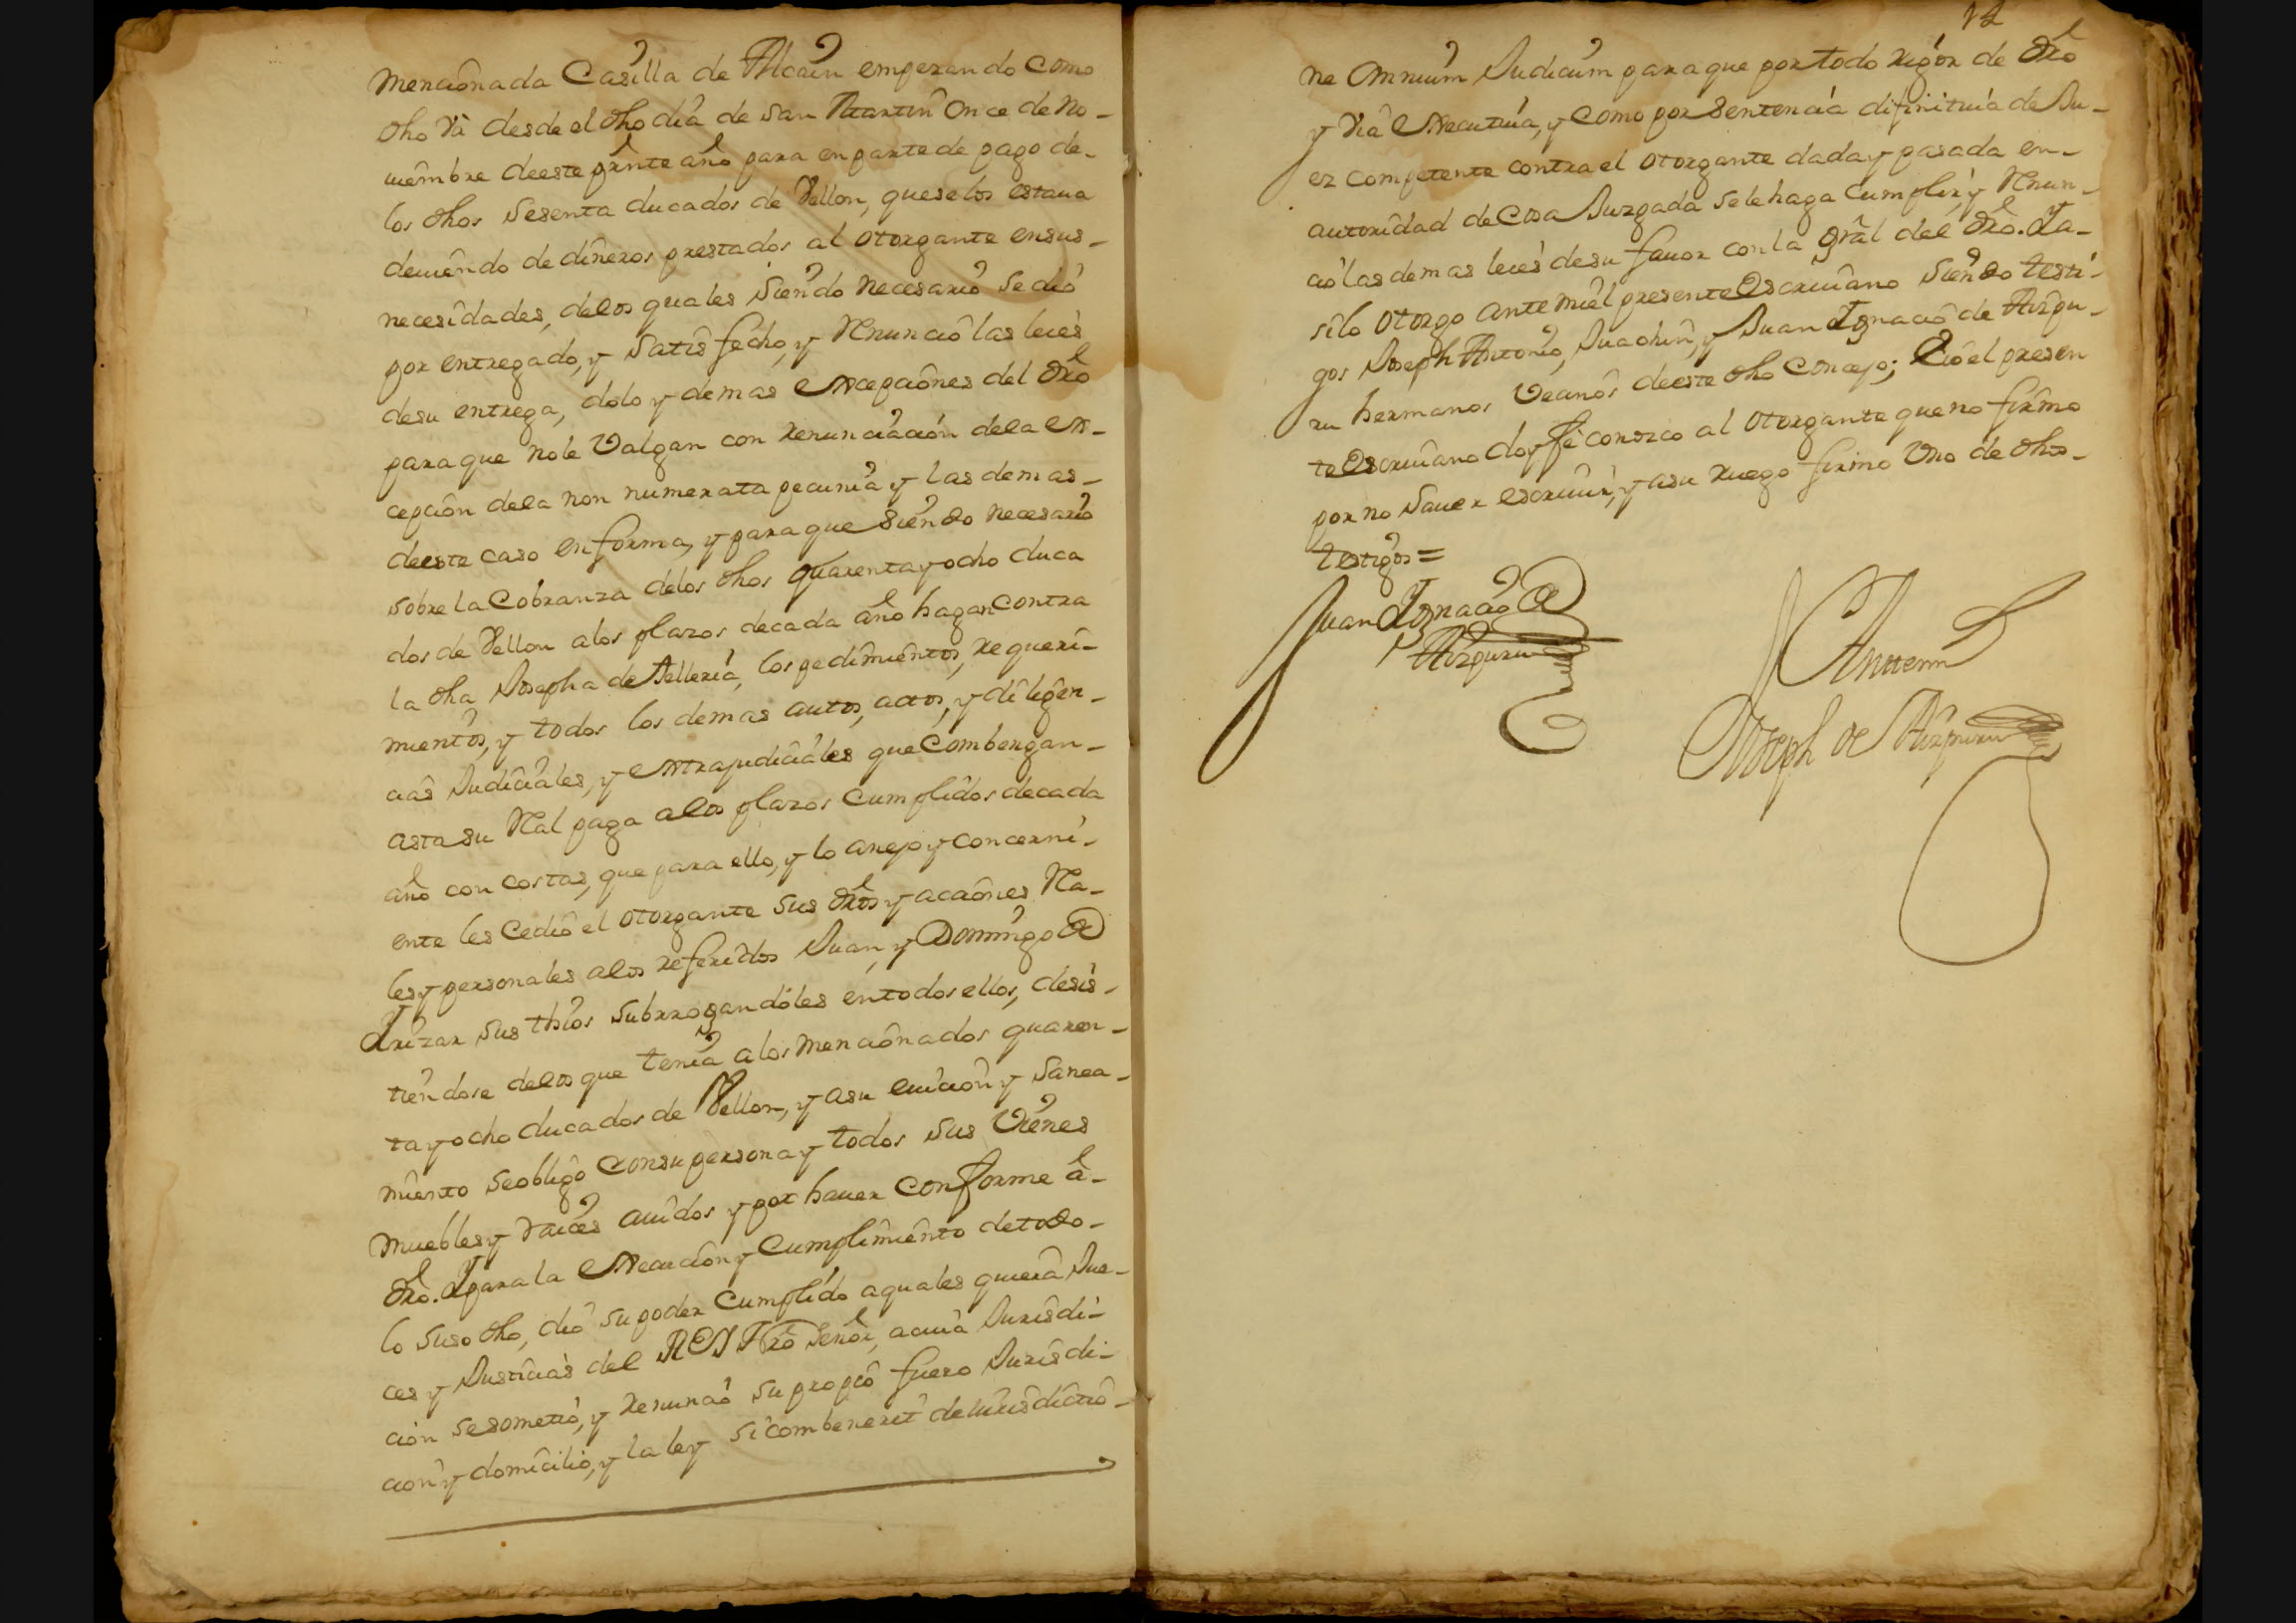 mencionada Casilla de Alcain empezando como
dho va desde el dho dia de San Martin once de No-
uiembre deeste prnte año para en parte de pago de-
los dhos Sesenta ducados de Vellon, queselos estaua
deuiendo de dineros prestados al otorgante ensus-
necesidades, delos quales siendo necesario se dió
por entregado, y satisfecho, y Renunció las leies
desu entrega, dolo y demas excepciones del dro
paraque nole Valgan con renunciación dela ex-
cepción dela non numerata pecunia y las demas-
deeste caso en forma, y paraque siendo necesario
sobre la Cobranza delos dhos quarentayocho duca
dos de Vellon alos plazos decada año hagan contra
la dha Josepha de Telleria, los pedimientos, requeri-
mientos, y todos los demas autos, actos, y diligen-
cias Judiciales, y extrajudiciales que combengan-
asta su Real paga alos plazos cumplidos decada
año con costas, que para ello, y lo anejo y concerni-
ente les cedió el otorgante sus dros y acciones Rea-
les y personales alos referidos Juan, y Domingo de
Irizar sus thios subrrogandoles entodos ellos, desis-
tiendose delos que tenia alos mencionados quaren-
tayocho ducados de Vellon, y asu euicion y sanea-
miento seobligó consu persona y todos sus Vienes
muebles y raices auidos y por hauer conforme á-
dro. Y para la execución y cumplimiento detodo-
lo suso dho, dió su poder cumplido a quales quiera Jue-
ces y Justicias del REY Nro Señor, acuia Jurisdi-
ción sesometió, y renunció su propio fuero Jurisdi-
cion y domicilio, y la ley si combenerit de iurisdictio-
12
ne Omnium Judicum paraque por todo rigor de dro
y via executiua, y como por sentencia difinitiua de Ju-
ez competente contra el otorgante dada y pasada en-
autoridad de Cosa Juzgada se lehaga cumplir, y Renun-
ció las demas leies desu fauor con la gral del dro. Ya-
silo otorgo ante mi el presente Escriuano siendo testi-
gos Joseph Antonio, Juachin, y Juan Ignacio de Aizpu-
ru hermanos Vecinos deeste dho Concejo; Eio el presen
te Escriuano doy fe conozco al otorgante que no firmo
por no sauer escriuir, y asu ruego firmo Uno de dhos-
testigos =
Juan Ignacio de
Aizpuru
Antemi
Joseph de Aizpuru